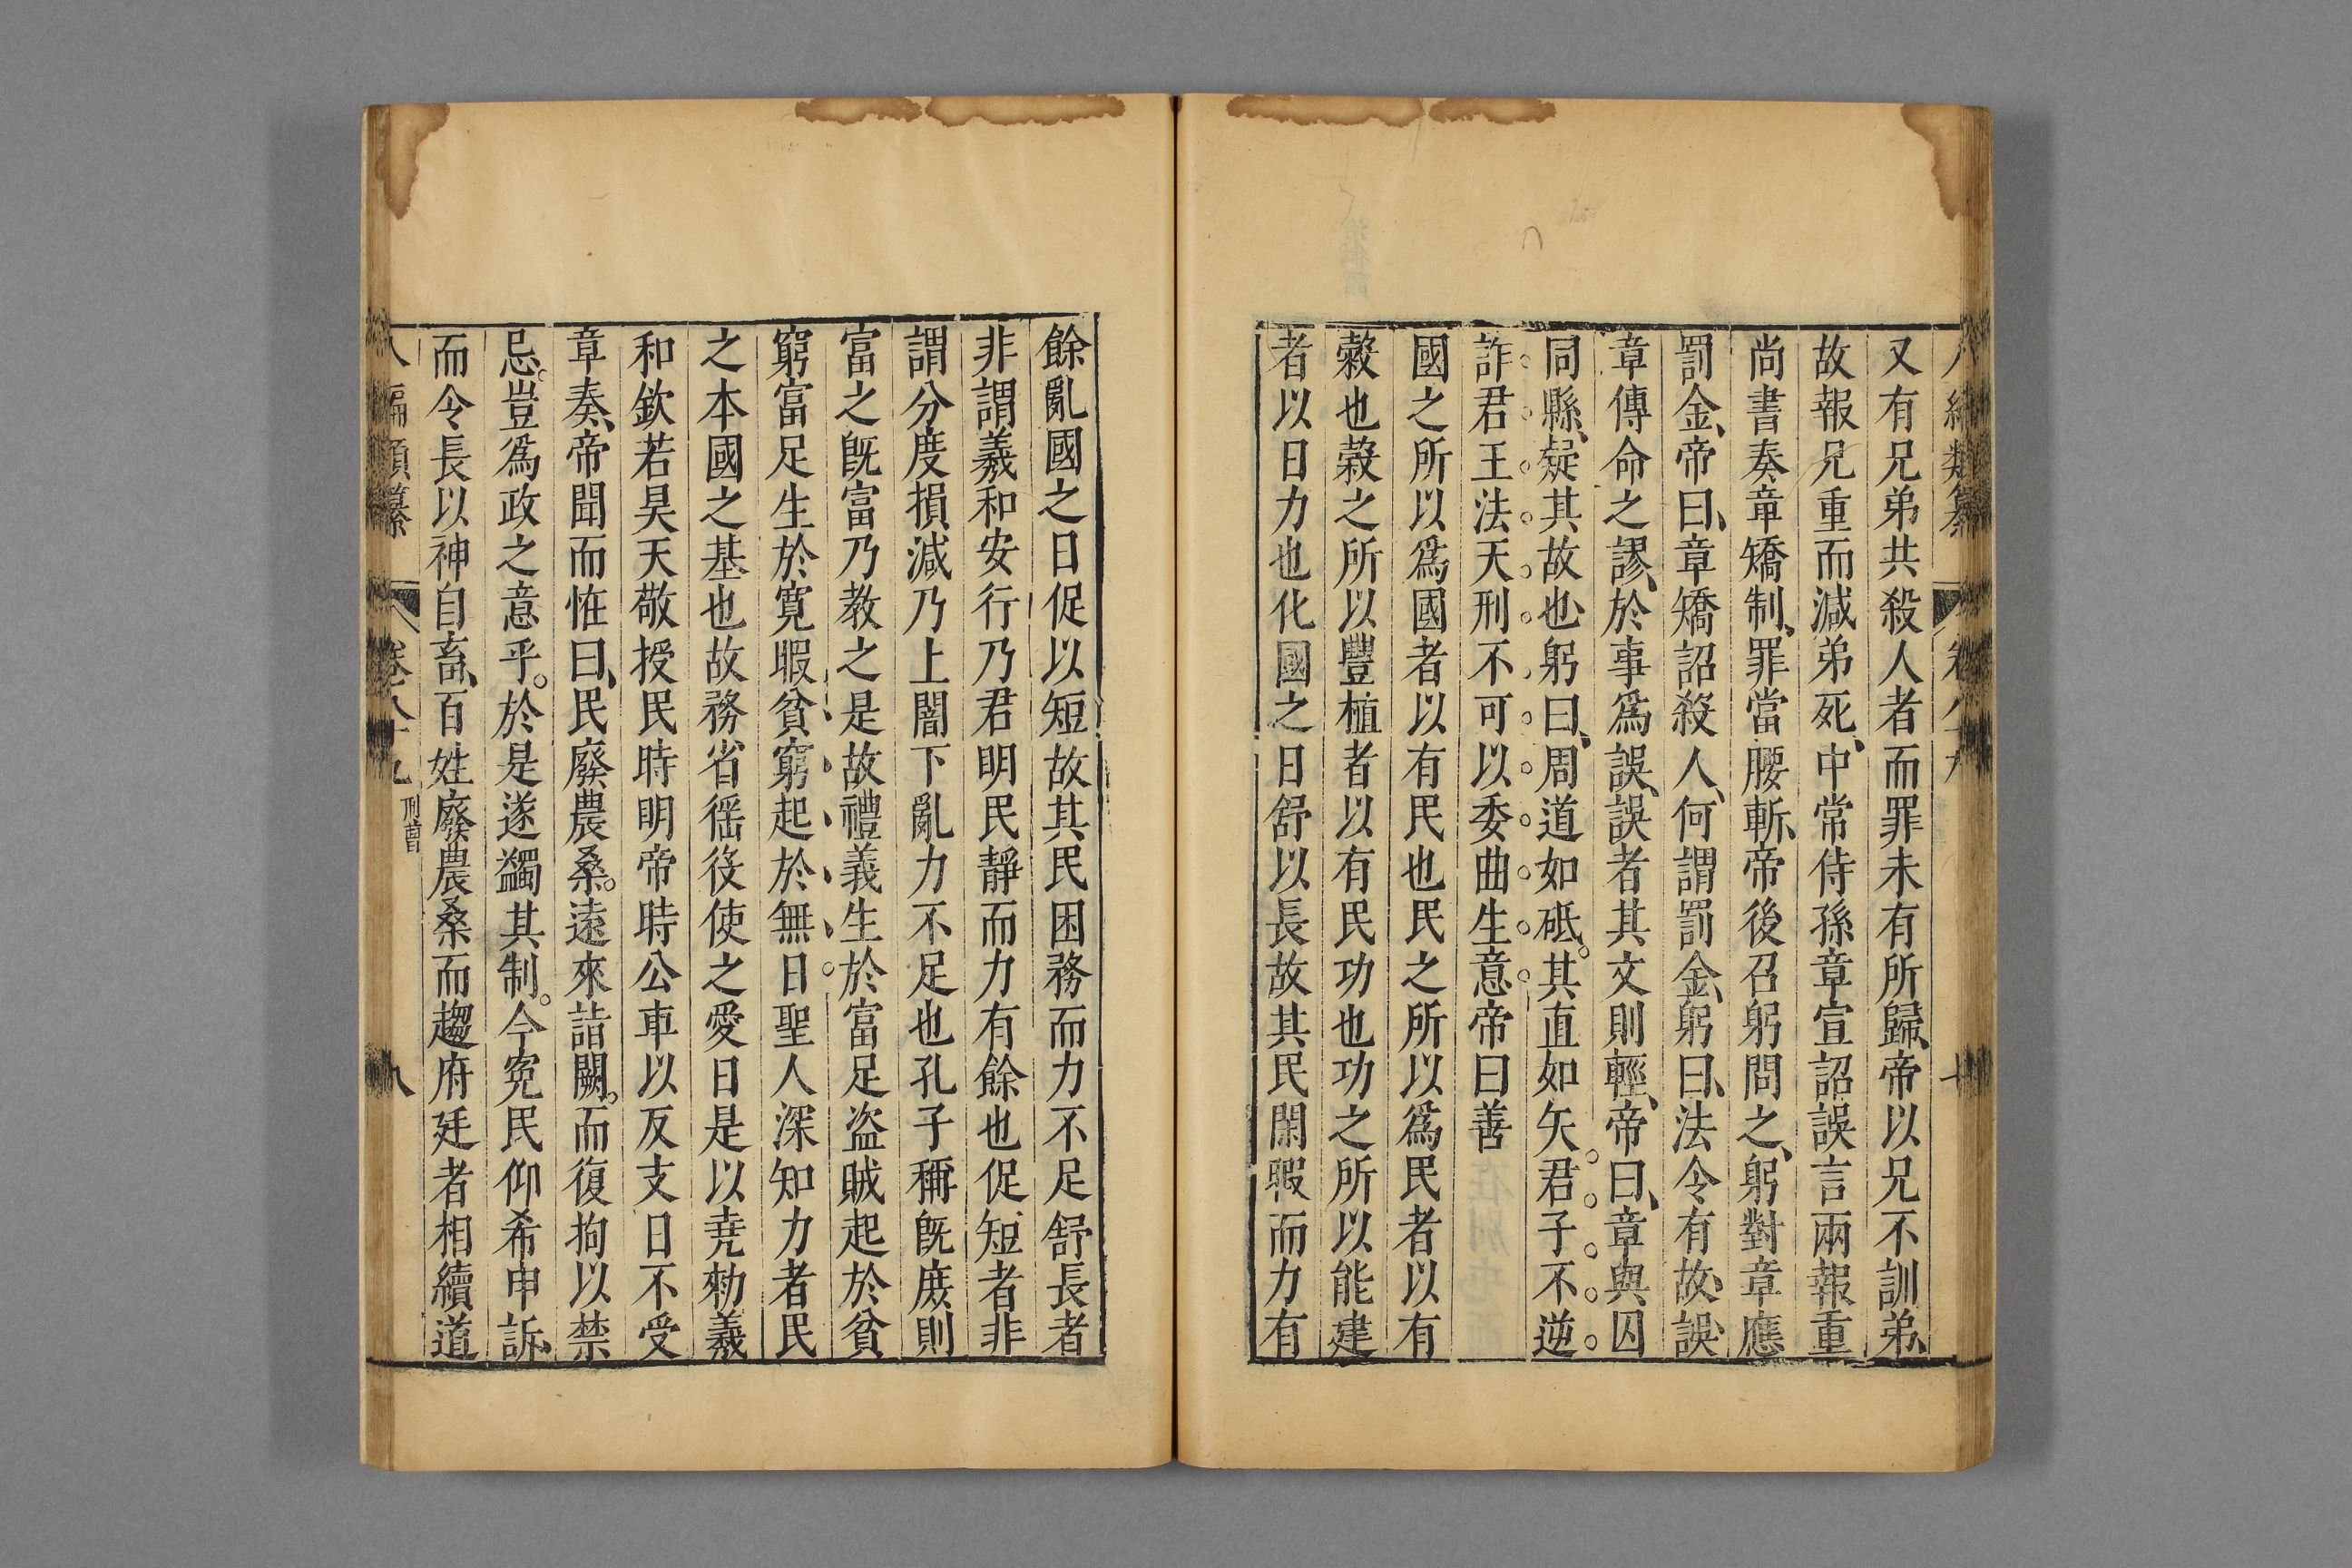 又有兄弟共殺人者而罪未有所歸、帝以兄不訓弟、
故報兄重而減弟死、中常侍孫章宣詔誤言兩報重
尚書奏章矯制、罪當腰斬、帝後召躬問之、躬對章應
罰金、帝曰、章矯詔殺人、何謂罰金、躬曰、法令有故誤、
章傳命之謬、於事爲誤、誤者其文則輕、帝曰、章與囚
同縣、疑其故也、躬曰、周道如砥。其直如矢。君子不逆
詐君王法天刑不可以委曲生意帝曰善
國之所以爲國者以有民也民之所以爲民者以有
穀也穀之所以豐植者以有民功也功之所以能建
者以日力也化國之日舒以長故其民閑暇而力有
餘亂國之日促以短故其民困務而力不足舒長者
非謂羲和安行乃君明民靜而力有餘也促短者非
謂分度損減乃上闇下亂力不足也孔子稱旣庶則
富之旣富乃教之是故禮義生於富足盜賊起於貧
窮富足生於寬暇貧窮起於無日聖人深知力者民
之本國之基也故務省徭役使之愛日是以堯勑羲
和欽若昊天敬授民時明帝時公車以反支日不受
章奏、帝聞而恠曰、民廢農桑。遠來詣闕。而復拘以禁
忌。豈爲政之意乎。於是遂蠲其制。今寃民仰希申訴、
而令長以神自畜、百姓廢農桑而趨府廷者相續道
八編類纂 卷八十九 刑曹 八